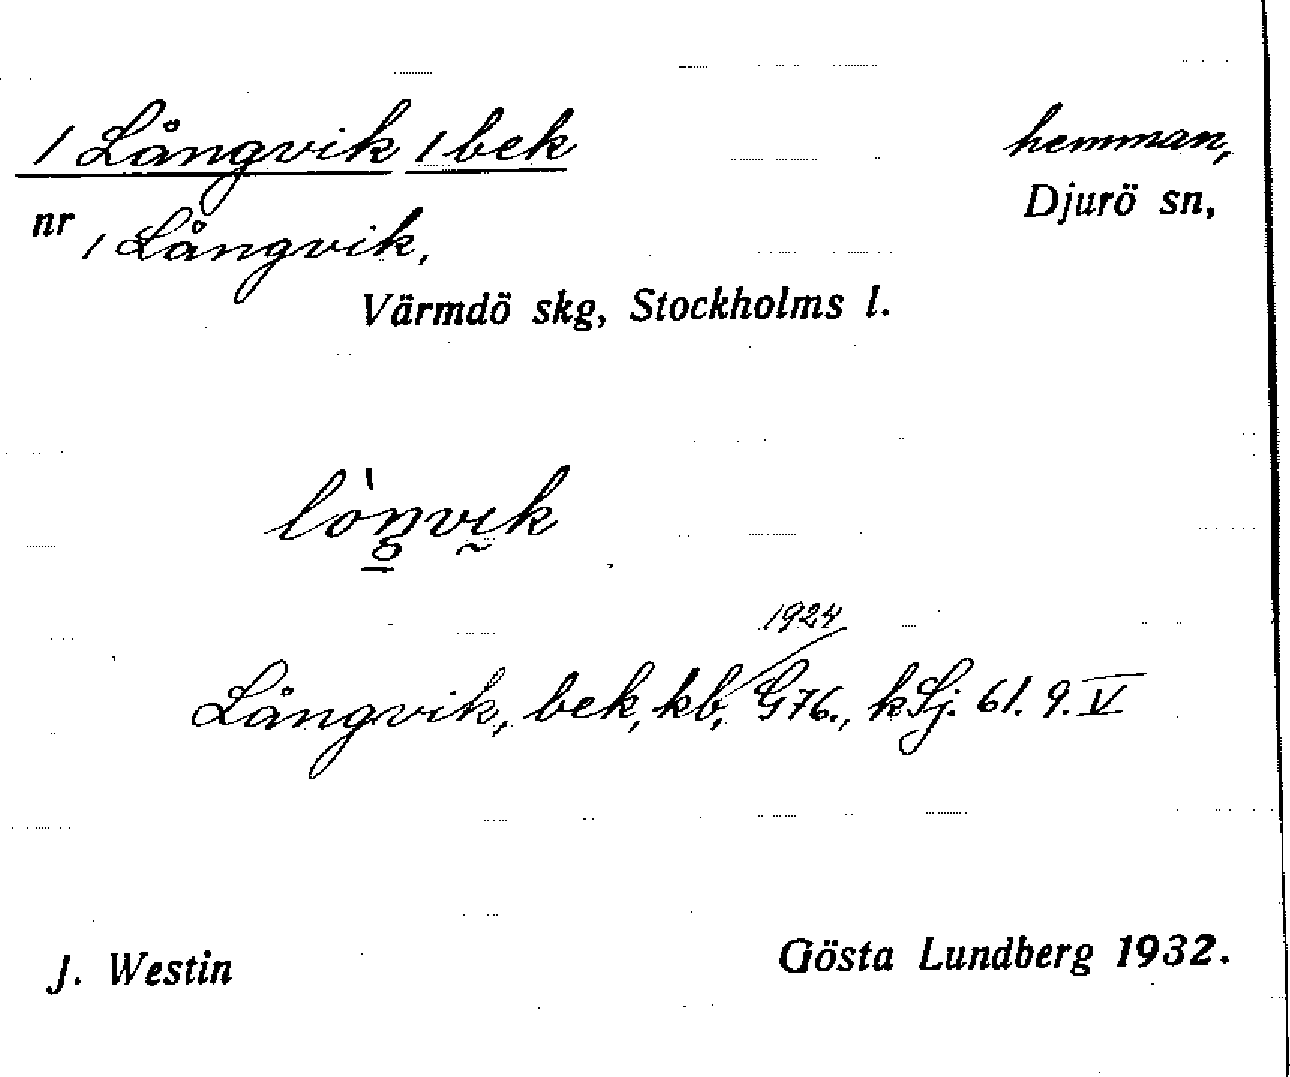 1 Långvik 1 bek hemman,
nr 1 Långvik, Djurö sn,
Värmdö skg, Stockholms l.
lòŋvik
1924
Långvik, bek, kb, G76., kSj. 61. 9. V
J. Westin Gösta Lundberg 1932.